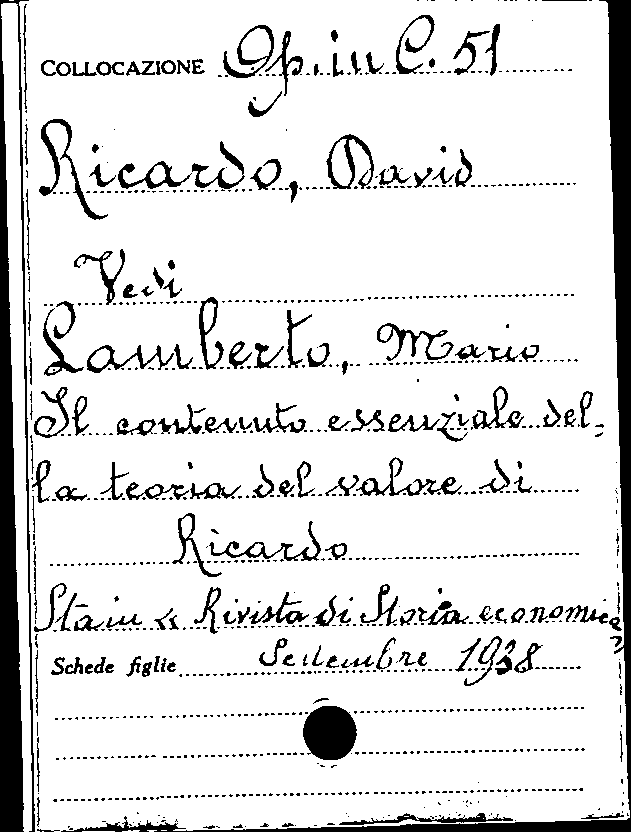 COLLOCAZIONE Op. in C. 51
Ricardo, David
Vedi
Lamberto, Mario
Il contenuto essenziale del-
la teoria del valore di
Ricardo
Sta in « Rivista di Storia economica »
Schede figlie Settembre 1938